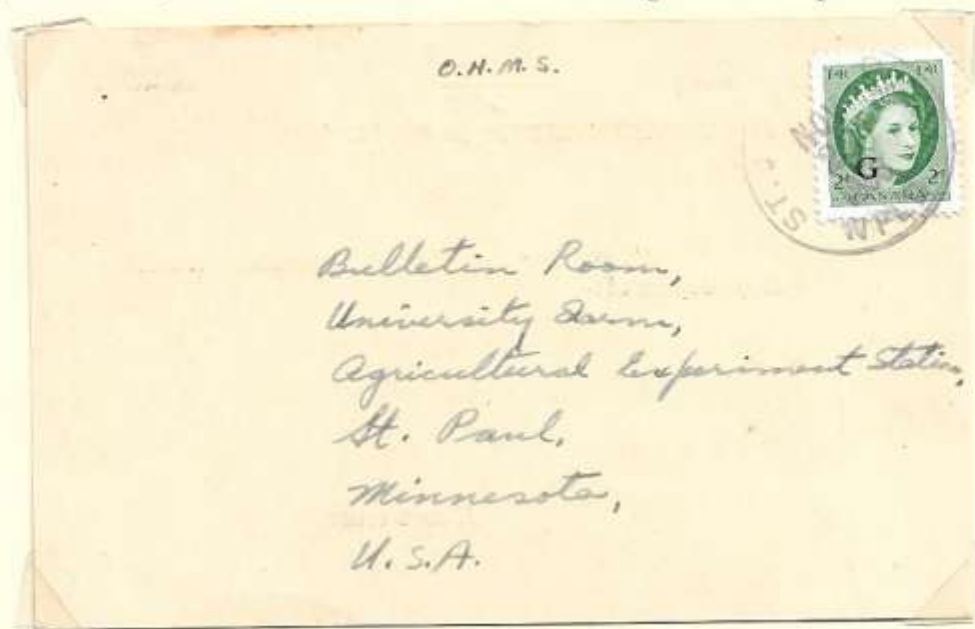 O.H.M.S.
G
2¢ 2¢
CANADA
ST.
Bulletin Room,
University Farm,
Agricultural Experiment Station,
St. Paul,
Minnesota,
U.S.A.